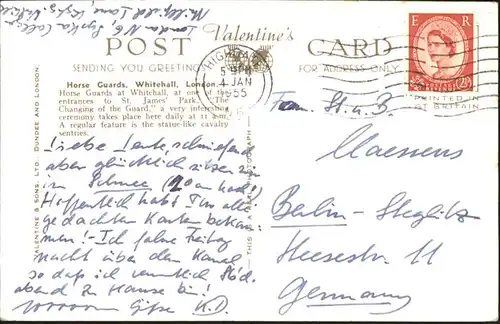 London N6,
POST Valentine's CARD
SENDING YOU GREETINGS FOR ADDRESS ONLY
E R
2½D
HIGH
5 PM
4 JAN
1955
PRINTED IN
GT BRITAIN
Horse Guards, Whitehall, London.
Horse Guards at Whitehall, at one of the
entrances to St. James' Park. "The
Changing of the Guard," a very interesting
ceremony takes place here daily at 11 a.m.
A regular feature is the statue-like cavalry
sentries.
VALENTINE & SONS, LTD., DUNDEE AND LONDON.
THIS IS A REAL PHOTOGRAPH
Liebe Leute, schniefend
aber glücklich sitzen wir
im Schnee (10 cm hoch)
Hoffentlich habt Ihr alle
gedachten Karten bekom-
men! - Ich fahre Freitag
nacht über den Kanal
so daß ich
abend zu Hause bin!
Fam. St. u. B.
Maessens
Berlin - Steglitz
Heesestr. 11
Germany